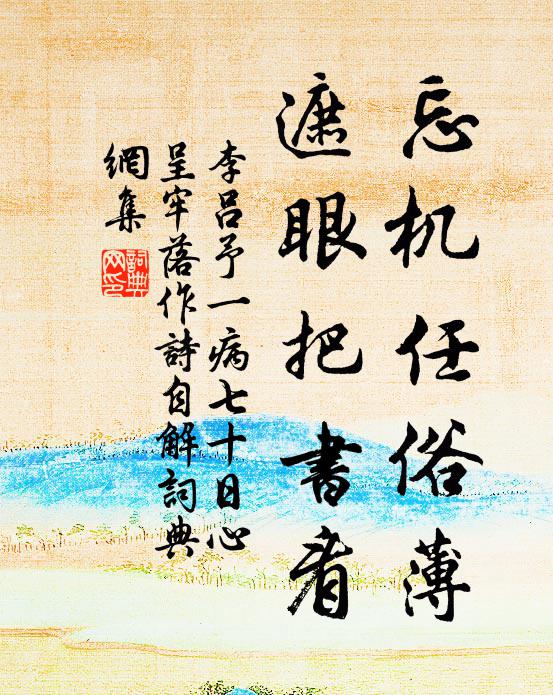 忘机任俗薄
遮眼把書看
李呂予一病七十日心
呈牢落作詩自解詞典
網集
詞典
网印